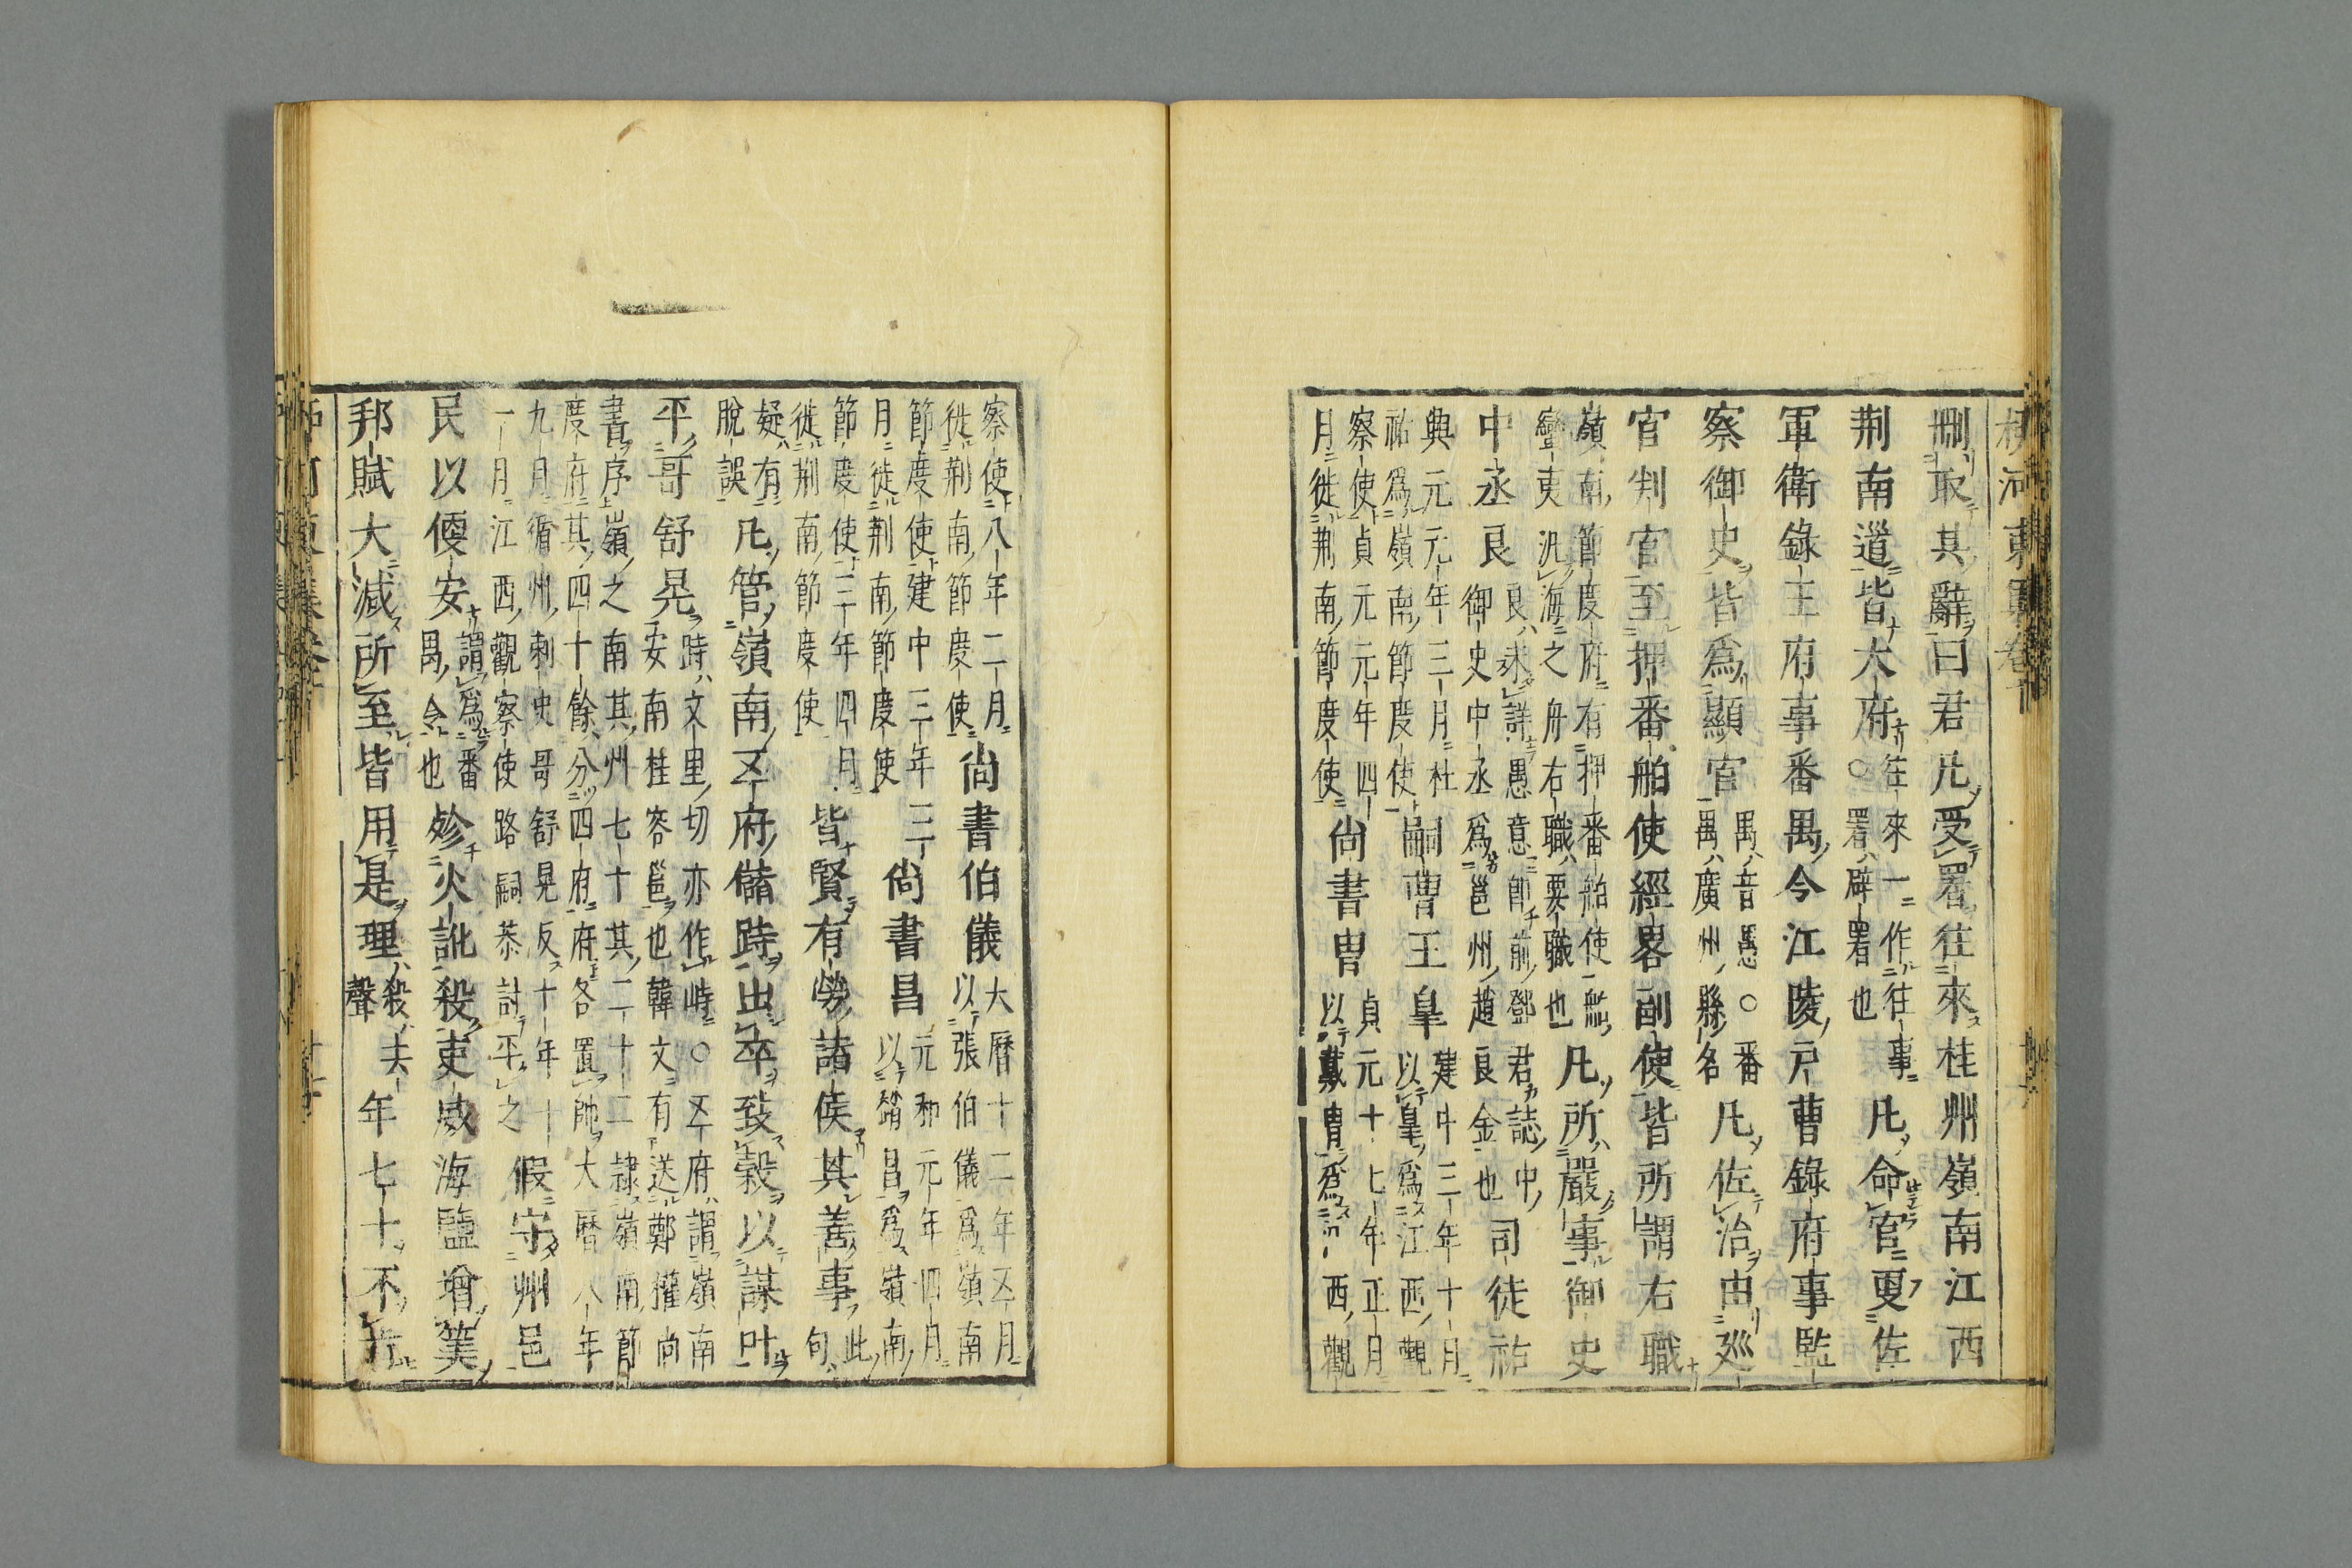 刪取其辭曰君凡受署往來桂州嶺南江西
荆南道皆大府往來一作往事○署辟署也凡命官更佐
軍衛錄王府事番禺今江陵戸曹錄府事監
察御史皆爲顯官禺音愚○番禺廣州縣名凡佐治由廵
官判官至押番舶使經畧副使皆所謂右職
嶺南節度府有押番舶使
蠻夷汎海之舟右職要職也凡所嚴事御史
中丞良良未詳愚意卽前鄧君誌中御史中丞爲邕州趙良金也司徒祐
興元元年三月杜祐爲嶺南節度使嗣曹王皐建中三年十月以皐爲江西觀
察使貞元元年四月徙荆南節度使尚書胄貞元十七年正月以戴胄爲江西觀
察使八年二月徙荆南節度使尚書伯儀大曆十二年五月以張伯儀爲嶺南
節度使建中三年三月徙荆南節度使尚書昌元和元年四月以趙昌爲嶺南
節度使三年四月徙荆南節度使皆賢有勞諸侯其善事此句
疑有脫誤凡管嶺南五府儲跱出卒致穀以謀叶
平哥舒晃跱丈里切亦作峙○五府謂嶺南安南桂容邕也韓文有送鄭權尚
書序嶺之南其州七十其二十二隷嶺南節度府其四十餘分四府府各置帥大曆八年
九月循州刺史哥舒晃反十年十一月江西觀察使路嗣恭討平之假守州邑
民以便安謂爲番禺令也殄火訛殺吏威海鹽增筭
邦賦大減所至皆用是理殺去聲年七十不